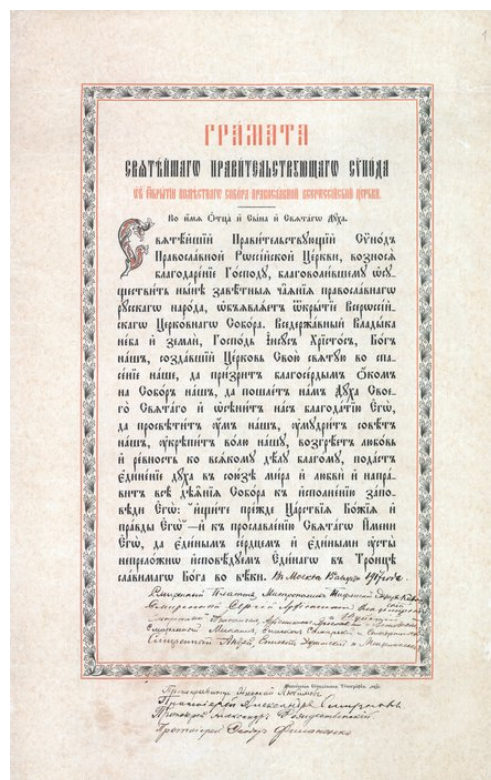 ГРА́МАТА
СВѦТѢ́ЙШАГѠ ПРАВИ́ТЕЛЬСТВꙋЮЩАГѠ СѴНО́ДА
Ѡ҆БЪ Ѿ҆КРЫ́ТІИ ПОМѢ́СТНАГѠ СОБО́РА ПРАВОСЛА́ВНОЙ ВСЕРѠССІ́ЙСКОЙ ЦЕ́РКВИ.
Во и҆́мѧ Ѻ҆тца̀ и҆ Сы́на и҆ Свѧта́гѡ Дꙋ́ха.
Свѧтѣ́йшій Прави́тельствꙋющій Сѵно́дъ
Правосла́вной Рѡссі́йской Це́ркви, вознося̀
благодаре́ніе Го́сподꙋ, благоволи́вшемꙋ ѡ҆сꙋ-
ществи́ть ны́нѣ завѣ́тныѧ ча́ѧніѧ правосла́внагѡ
рꙋ́сскагѡ наро́да, ѡ҆бъѧвлѧ́етъ ѿкры́тіе Всерѡссі́й-
скагѡ Церко́внагѡ Собо́ра. Вседержа́вный Влады́ка
не́ба и҆ земли́, Госпо́дь І҆исꙋ́съ Хрїсто́съ, Бо́гъ
на́шъ, созда́вшій Це́рковь Свою̀ свѧтꙋ́ю во спа-
се́ніе на́ше, да при́зритъ благосе́рдымъ Ѻ҆́комъ
на Собо́ръ на́шъ, да по́шлетъ на́мъ Дꙋ́ха Свое-
гѡ̀ Свѧта́го и҆ ѡ҆сѣни́тъ на́съ благода́тію Є҆гѡ̀,
да просвѣти́тъ ᲂу҆́мъ на́шъ, ᲂу҆мꙋдри́тъ совѣ́тъ
на́шъ, ᲂу҆крѣпи́тъ во́лю на́шꙋ, возгрѣ́етъ любо́вь
и҆ ре́вность ко всѧ́комꙋ дѣ́лꙋ благо́мꙋ, пода́стъ
є҆дине́ніе дꙋ́ха въ сою́зѣ ми́ра и҆ любвѝ и҆ напра́-
витъ всѣ̀ дѣѧ́ніѧ Собо́ра къ и҆сполне́нію за́по-
вѣди Є҆гѡ̀: „и҆щи́те пре́жде Ца́рствіѧ Бо́жіѧ и҆
пра́вды Є҆гѡ̀“—и҆ къ прославле́нію Свѧта́гѡ И҆́мени
Є҆гѡ̀, да є҆ди́нымъ се́рдцемъ и҆ є҆ди́ными ᲂу҆сты̀
непрело́жнѡ и҆сповѣ́дꙋемъ Є҆ди́нагѡ въ Тро́ицѣ
сла́вимагѡ Бо́га во вѣ́ки. Въ Москвѣ 15 августа 1917 года.
Смиренный Платонъ, Митрополитъ Тифлисскій
Смиренный Сергій Архіепископъ Финляндскій
Смиренный Архіепископъ
Смиренный Михаилъ, Епископъ Самарскій и Ставропольскій
Смиренный Андрей, Епископъ Уфимскій и Мензелинскій
Московская Сѵнодальная Типографія. 1917г.
Протопресвитеръ Николай Любимовъ
Протоіерей Александръ Смирновъ
Протоіерей Александръ Рождественскій
Протоіерей Ѳеодоръ Филоненко